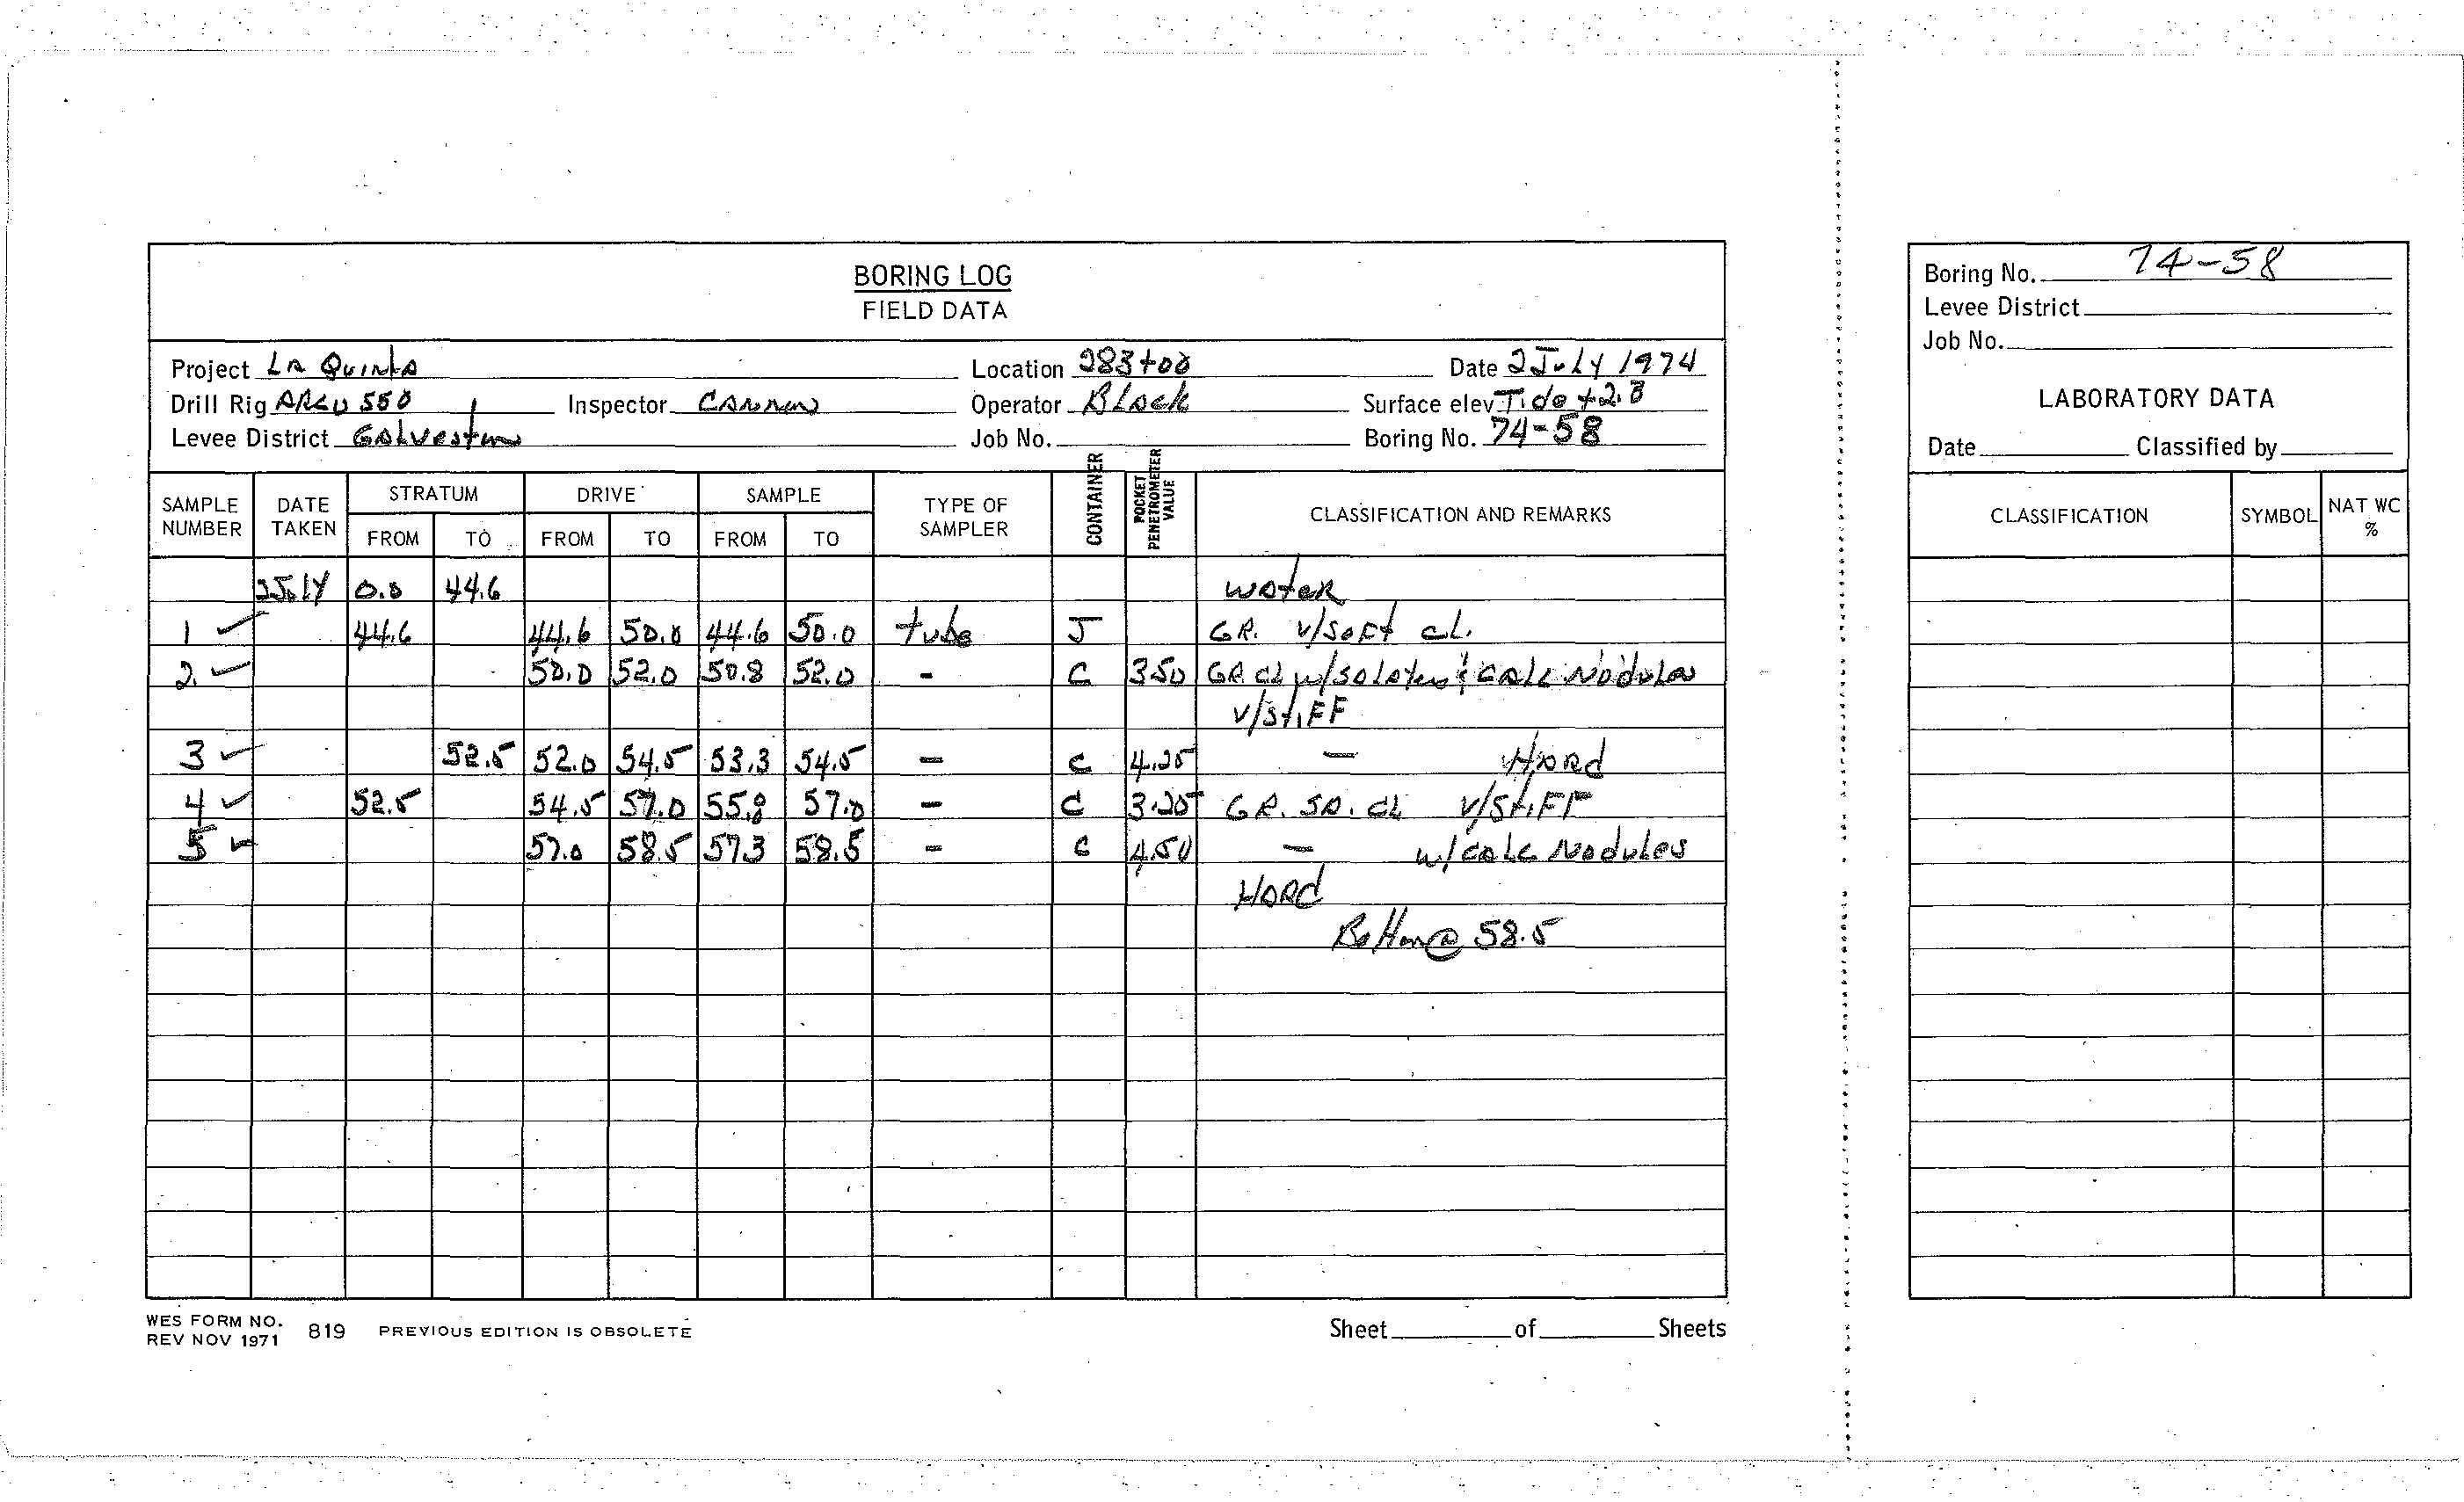 BORING LOG
FIELD DATA
Project LA Quinta Location 283+00 Date 2 July 1974
Drill Rig 550 Inspector Cannon Operator Black Surface elev. Tide +2.8
Levee District Galveston Job No. Boring No. 74-58
SAMPLE NUMBER DATE TAKEN STRATUM FROM TO DRIVE FROM TO SAMPLE FROM TO TYPE OF SAMPLER CONTAINER POCKET PENETROMETER VALUE CLASSIFICATION AND REMARKS
2July 0.0 44.6 water
1 ✓ 44.6 44.6 50.0 44.6 50.0 tube J GR. v/soft cl.
2. ✓ 50.0 52.0 50.8 52.0 - C 3.50 GR cl w/ & calc Nodules
v/stiff
3 ✓ 52.5 52.0 54.5 53.3 54.5 - C 4.25 - Hard
4 ✓ 52.5 54.5 57.0 55.8 57.0 - C 3.25 GR. SA. CL v/stiff
5 ✓ 57.0 58.5 57.3 58.5 - C 4.50 - w/ calc Nodules
Hard
Bottom @ 58.5
WES FORM NO. 819 PREVIOUS EDITION IS OBSOLETE
REV NOV 1971
Sheet of Sheets
Boring No. 74-58
Levee District
Job No.
LABORATORY DATA
Date Classified by
CLASSIFICATION SYMBOL NAT WC %